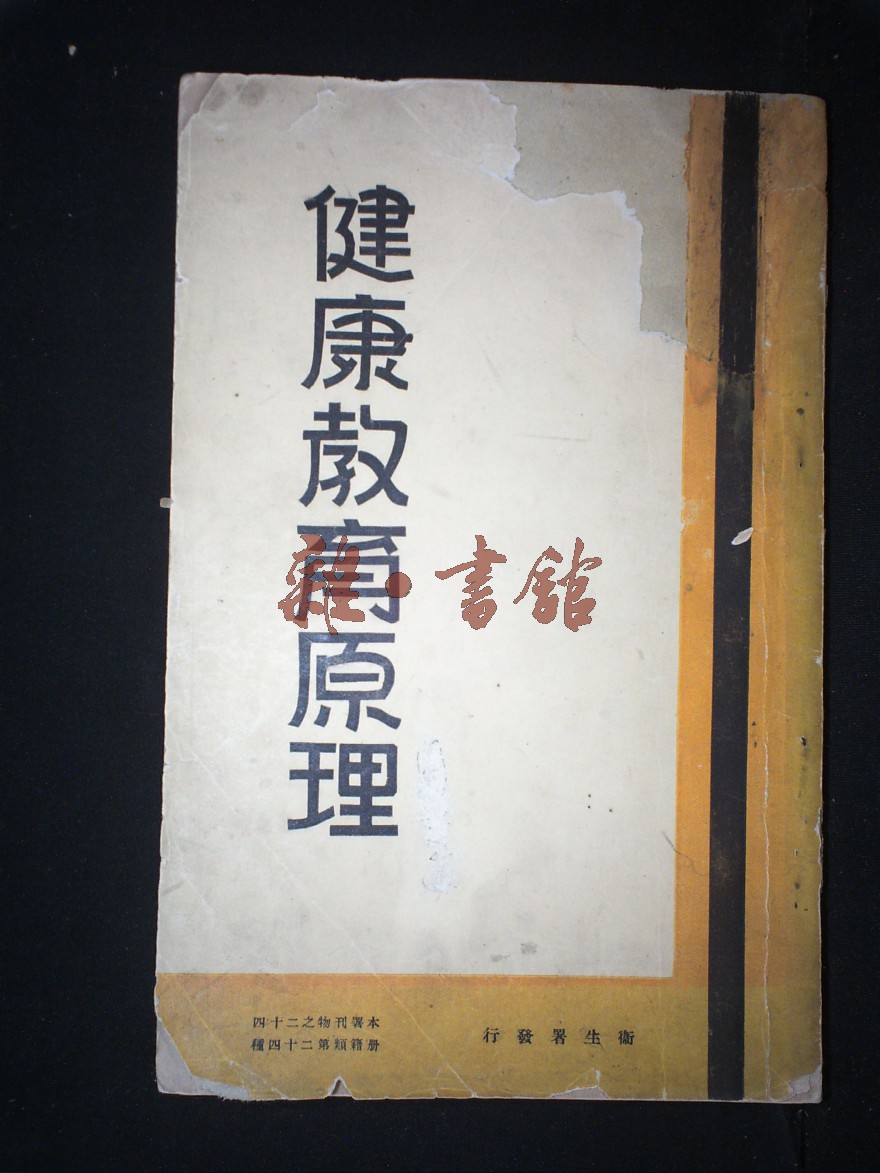 健康教育原理
雜·書館
衞生署發行
本署刊物之二十四
册籍類第二十四種